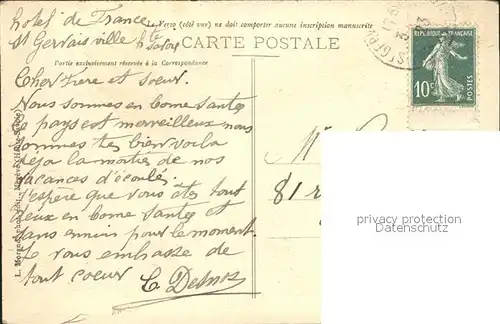 hotel de France
St Gervais ville hte savoie
Verso (côté vue) ne doit comporter aucune inscription manuscrite
CARTE POSTALE
Partie exclusivement réservée à la Correspondance
RÉPUBLIQUE FRANÇAISE
10c
POSTES
Cher Frère et soeur.
Nous sommes en bonne Santes
pays est merveilleux nous
sommes tes bien voila
deja la moitiés de nos
vacances d'écoulés.
J'espère que vous êtes tout
deux en bonne Santes et
sans ennuis pour le moment.
Je vous embrasse de
tout coeur
81 r
privacy protection
Datenschutz